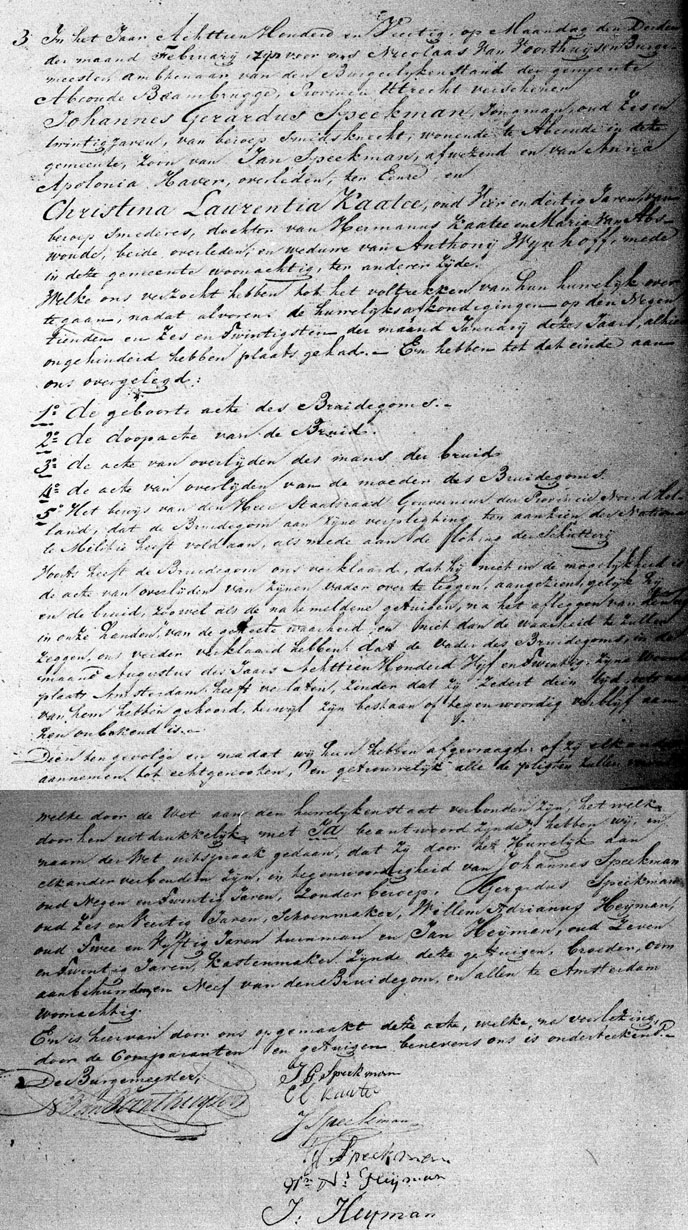 3. In het Jaar Achttien Honderd en Veertig, op Maandag den Derden
der maand February, zyn voor ons Nicolaas Van Voorthuijsen Burge-
meester, Ambtenaar van den Burgerlyken Stand der gemeente
Abcoude Baambrugge, Provincie Utrecht verschenen
Johannes Gerardus Speekman, Jongman, oud Zes en
twintig Jaren, van beroep Smidsknecht, wonende te Abcoude in deze
gemeente, Zoon van Jan Speekman, afwezend en van Anna
Apolonia Haver, overleden, ten Eenre en
Christina Laurentia Kaatee, oud Vier en dertig Jaren, van
beroep Smederes, dochter van Hermanus Kaatee en Maria Van Abs-
woude, beide overleden, en weduwe van Anthonij Wynhoff, mede
in deze gemeente woonachtig, ter anderer Zyde.
Welke ons verzocht hebben tot het voltrekken van hun huwelyk over
te gaan, nadat alvorens de huwelyksafkondigingen op den Negen-
tienden en Zes en Twintigsten der maand January dezes Jaars, alhier
ongehinderd hebben plaats gehad. En hebben tot dat einde aan
ons overgelegd:
1o de geboorte acte des Bruidegoms.
2o de doopacte van de Bruid.
3o de acte van overlyden des mans der bruid
4o de acte van overlyden van de moeder des Bruidegoms
5o Het bewys van den Heer Staatsraad Gouverneur der Provincie Noord Hol-
land, dat de Bruidegom aan zyne verpligting ten aanzien der Nationa-
le Militie heeft voldaan, als mede aan de loting der Schuttery
Voorts heeft de Bruidegom ons verklaard, dat hy niet in de mogelykheid is
de acte van overlyden van zynen vader over te leggen, aangezien, gelyk hy
en de bruid, zoowel als de na te meldene getuigen, na het afleggen van den eed
in onze handen, van de geheele waarheid en niet dan de waarheid te zullen
zeggen, ons verder verklaard hebben, dat de vader des Bruidegoms, in de
maand Augustus des Jaars Achttien Honderd Vyf en Twintig, zyne woon-
plaats Amsterdam heeft verlaten, zonder dat zy zedert dien tyd iets
van hem hebben gehoord, terwyl zyn bestaan of tegenwoordig verblyf aan
hen onbekend is.
Dien ten gevolge en nadat wy hun hebben afgevraagd of zy elkander
aannemen tot echtgenooten, en getrouwelyk alle de pligten zullen
welke door de Wet aan den huwelyken staat verbonden zyn, het welk
door hen uitdrukkelyk met Ja beantwoord zynde, hebben wy, in
naam der Wet uitspraak gedaan, dat zy door het Huwelyk aan
elkander verbonden zyn, in tegenwoordigheid van Johannes Speekman
oud Negen en Twintig Jaren, zonder beroep, Gerardus Speekman
oud Zes en Veertig Jaren, Schoenmaker, Willem Adrianus Heyman,
oud Twee en Vyftig Jaren huurman en Jan Heyman, oud Zeven
en Twintig Jaren, Kastenmaker zynde deze getuigen, broeder, oom
aanbehuwden en Neef van den Bruidegom, en allen te Amsterdam
woonachtig.
En is hiervan door ons opgemaakt deze acte, welke, na voorlezing,
door de Comparanten en getuigen benevens ons is onderteekend.
De Burgemeester,
N Van Voorthuysen
J G Speekman
C L Kaatee
J Speekman
G. Speekman
Wm As Heyman
J: Heyman